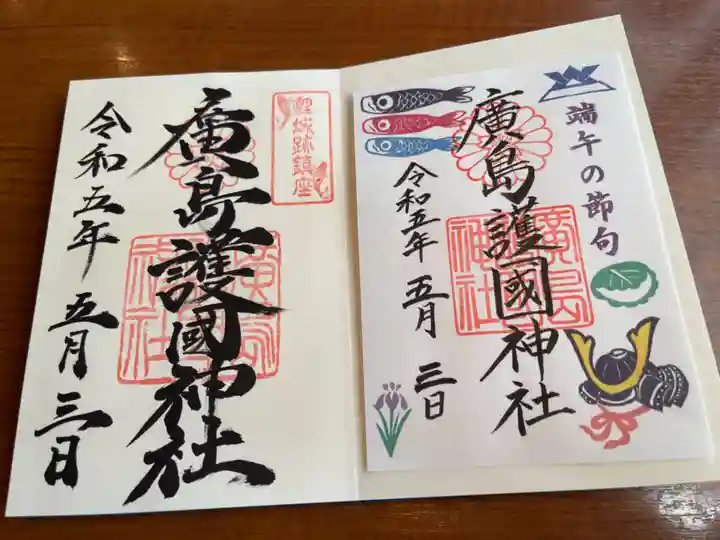 鯉城跡鎮座
廣島護國神社
令和五年 五月 三日
端午の節句
廣島護國神社
令和五年 五月 三日
廣島護國神社